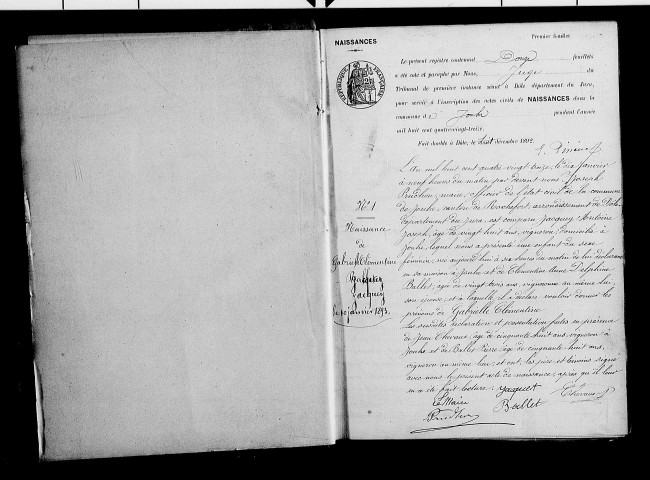 NAISSANCES
Premier feuillet
Le présent registre contenant Douze feuillets
a été coté et paraphé par Nous, Juge du
Tribunal de première instance séant à Dôle département du Jura,
pour servir à l'inscription des actes civils de NAISSANCES dans la
commune d'e Jouhe pendant l'année
mil huit cent quatre-vingt-treize.
Fait double à Dôle, le huit décembre 1892.
RÉPUBLIQUE FRANÇAISE
N° 1
Naissance
de
Gabrielle Clémentine
Jacquey
du 10 janvier 1893.
L'an mil huit cent quatre vingt treize, le dix Janvier
à neuf heures du matin par devant nous Joseph
Prudhon, maire, officier de l'état civil de la commune
de Jouhe, canton de Rochefort, arrondissement de Dole,
département du Jura, est comparu Jacquey Antoine
Joseph, âgé de vingt huit ans, vigneron, domicilié à
Jouhe, lequel nous a présenté une enfant du sexe
féminin, née aujourd'hui à six heures du matin de lui déclarant
en sa maison à Jouhe et de Clémentine Anne Delphine
Ballet, âgée de vingt trois ans, vigneronne au même lieu,
son épouse, et à laquelle il a déclaré vouloir donner les
prénoms de Gabrielle Clémentine
Les présentes déclaration et présentation faites en présence
de Jean Chevaux, âgé de cinquante huit ans, vigneron à
Jouhe et de Ballet Pierre, âgé de cinquante huit ans,
vigneron au même lieu, et ont, les père et témoins signé
avec nous le présent acte de naissance, après qu'il leur
en a été fait lecture.
Jaquet
Le Maire
Ballet
Chevaux
Prudhon